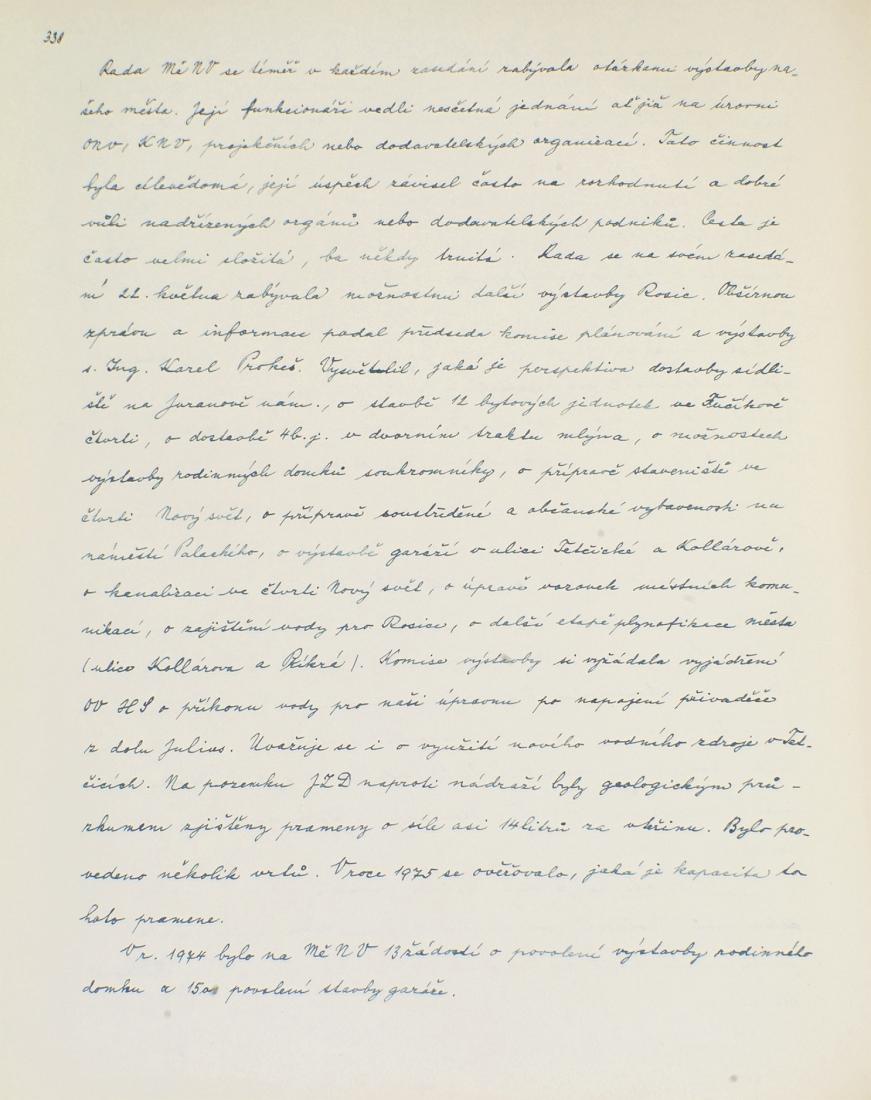 338
Rada MěNV se téměř v každém zasedání zabývala otázkami výstavby na-
šeho města. Její funkcionáři vedli nesčetná jednání ať již na úrovni
ONV, KNV, projekčních nebo dodavatelských organizací. Tato činnost
byla cílevědomá, její úspěch závisel často na rozhodnutí a dobré
vůli nadřízených orgánů nebo dodavatelských podniků. Cesta je
často velmi složitá, ba někdy trnitá. Rada se na svém zasedá-
ní 22. května zabývala možnostmi další výstavby Rosic. Obšírnou
zprávu a informace podal předseda komise plánování a výstavby
s. Ing. Karel Prokeš. Vysvětlil, jaká je perspektiva dostavby sídli-
ště na Juranově nám., o stavbě 12 bytových jednotek ve Fučíkově
čtvrti, o dostavbě 4b.j. v dvorním traktu mlýna, o možnostech
výstavby rodinných domků soukromníky, o přípravě staveniště ve
čtvrti Nový svět, o přípravě soustředěné a občanské vybavenosti na
náměstí Palackého, o výstavbě garáží v ulici Tetčické a Kollárově,
o kanalizaci ve čtvrti Nový svět, o úpravě vozovek místních komu-
nikací, o zajištění vody pro Rosice, o další etapě plynofikace města
(ulice Kollárova a Příkrá). Komise výstavby si vyžádala vyjádření
OV HS o příkonu vody pro naši úpravnu po napojení přivaděče
z dolu Julius. Uvažuje se i o využití nového vodního zdroje v Tet-
čicích. Na pozemku JZD naproti nádraží byly geologickým prů-
zkumem zjištěny prameny o síle asi 14 litrů za vteřinu. Bylo pro-
vedeno několik vrtů. V roce 1975 se ověřovalo, jaká je kapacita to
hoto pramene.
V r. 1974 bylo na MěNV 13 žádostí o povolení výstavby rodinného
domku a 15 o povolení stavby garáže.